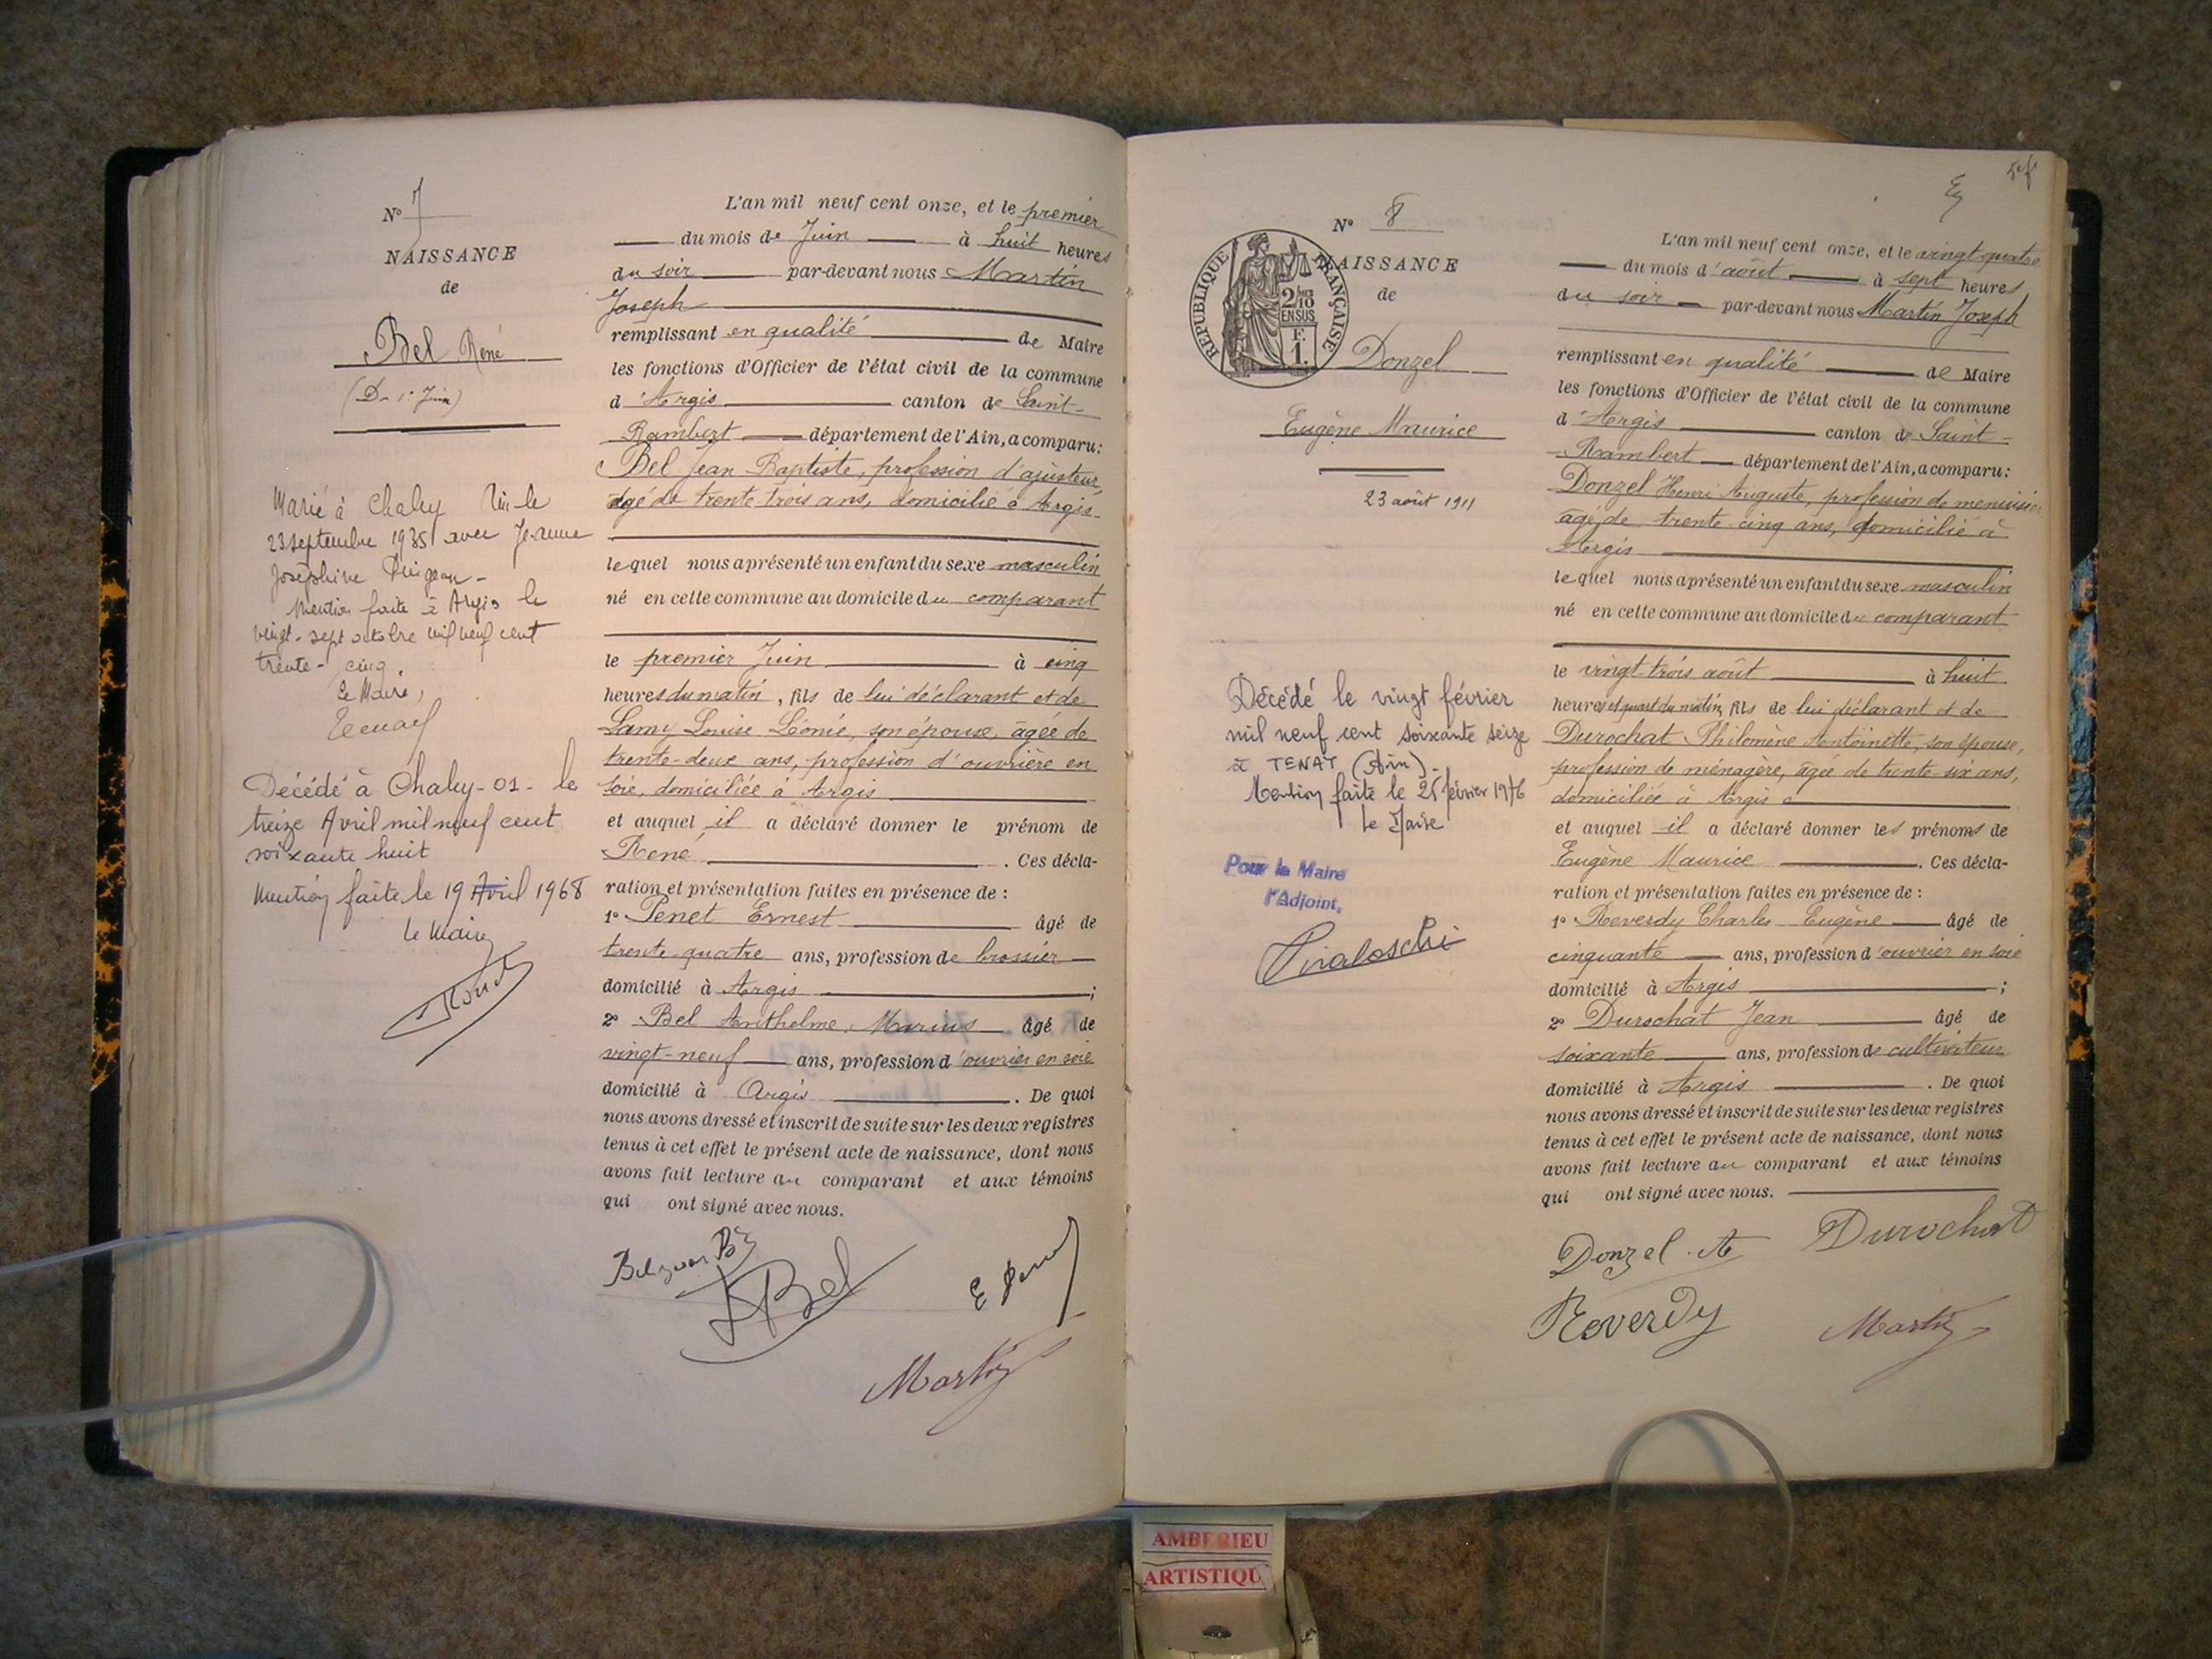 N° 7
NAISSANCE
de
Bel René
(Du 1er Juin)
Marié à Chaley Ain le
23 septembre 1935 avec Jeanne
Joséphine
Mention faite à Argis le
vingt-sept octobre mil neuf cent
trente-cinq.
Le Maire,
Décédé à Chaley-01- le
treize Avril mil neuf cent
soixante huit
Mention faite le 19 Avril 1968
Le Maire
L'an mil neuf cent onze, et le premier
du mois de Juin à huit heures
du soir par-devant nous Martin
Joseph
remplissant en qualité de Maire
les fonctions d'Officier de l'état civil de la commune
d'Argis canton de Saint-
Rambert département de l'Ain, a comparu:
Bel Jean Baptiste, profession d'ajusteur,
âgé de trente-trois ans, domicilié à Argis
lequel nous a présenté un enfant du sexe masculin
né en cette commune au domicile du comparant
le premier Juin à cinq
heures du matin, fils de lui déclarant et de
Lamy Louise Léonie, son épouse, âgée de
trente-deux ans, profession d'ouvrière en
soie, domiciliée à Argis
et auquel il a déclaré donner le prénom de
René. Ces décla-
ration et présentation faites en présence de :
1° Penet Ernest âgé de
trente-quatre ans, profession de brossier
domicilié à Argis ;
2° Bel Anthelme Marius âgé de
vingt-neuf ans, profession d'ouvrier en soie
domicilié à Argis. De quoi
nous avons dressé et inscrit de suite sur les deux registres
tenus à cet effet le présent acte de naissance, dont nous
avons fait lecture au comparant et aux témoins
qui ont signé avec nous.
Bel
E Penet
Martin
N° 8
NAISSANCE
de
RÉPUBLIQUE FRANÇAISE
2/10
EN SUS
F.
1.
Donzel
Eugène Maurice
23 août 1911
Décédé le vingt février
mil neuf cent soixante seize
à TENAY (Ain).
Mention faite le 25 février 1976
Le Maire
Pour le Maire
l'Adjoint,
L'an mil neuf cent onze, et le vingt-quatre
du mois d'août à sept heures
du soir par-devant nous Martin Joseph
remplissant en qualité de Maire
les fonctions d'Officier de l'état civil de la commune
d'Argis canton de Saint-
Rambert département de l'Ain, a comparu:
Donzel Henri Auguste, profession de menuisier
âgé de trente-cinq ans, domicilié à
Argis
lequel nous a présenté un enfant du sexe masculin
né en cette commune au domicile du comparant
le vingt-trois août à huit
heures et quart du matin, fils de lui déclarant et de
Durochat Philomène Antoinette, son épouse,
profession de ménagère, âgée de trente-six ans,
domiciliée à Argis
et auquel il a déclaré donner les prénoms de
Eugène Maurice. Ces décla-
ration et présentation faites en présence de :
1° Reverdy Charles Eugène âgé de
cinquante ans, profession d'ouvrier en soie
domicilié à Argis ;
2° Durochat Jean âgé de
soixante ans, profession de cultivateur
domicilié à Argis. De quoi
nous avons dressé et inscrit de suite sur les deux registres
tenus à cet effet le présent acte de naissance, dont nous
avons fait lecture au comparant et aux témoins
qui ont signé avec nous.
Donzel. A Durochat
Reverdy Martin
AMBERIEU
ARTISTIQU